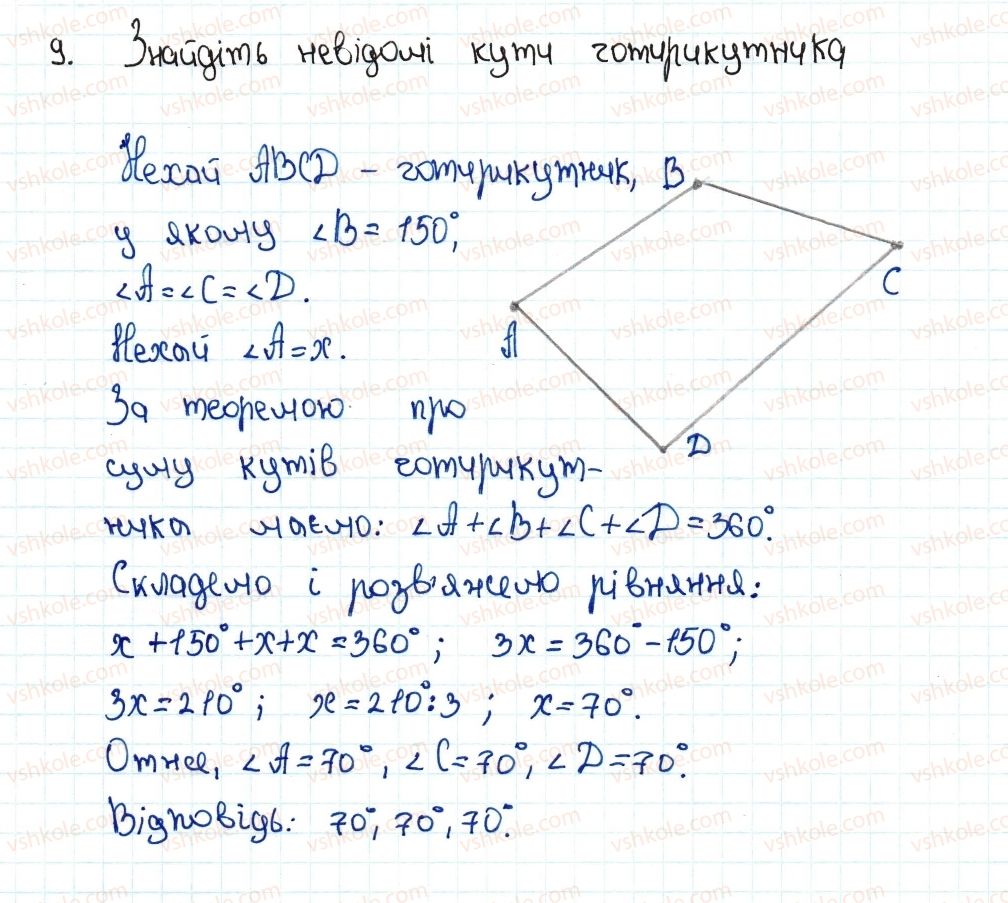 9. Знайдіть невідомі кути чотирикутника
Нехай ABCD – чотирикутник, B
у якому ∠B = 150°,
∠A = ∠C = ∠D.
C
Нехай ∠A = x.
A
За теоремою про
D
суму кутів чотирикут-
ника маємо: ∠A + ∠B + ∠C + ∠D = 360°.
Складемо і розв'яжемо рівняння:
x + 150° + x + x = 360° ; 3x = 360° – 150° ;
3x = 210° ; x = 210° : 3 ; x = 70°.
Отже, ∠A = 70° , ∠C = 70° , ∠D = 70°.
Відповідь: 70°, 70°, 70°.
vshkole.com